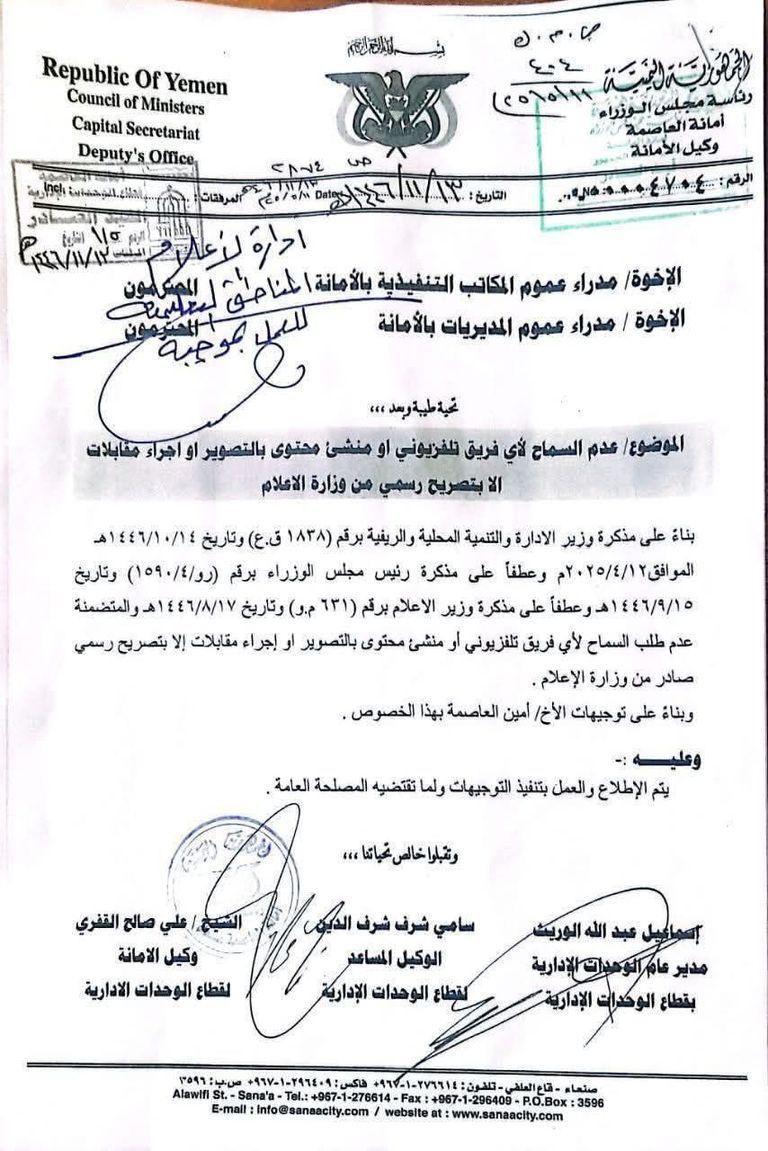 بسم الله الرحمن الرحيم
Republic Of Yemen
Council of Ministers
Capital Secretariat
Deputy's Office
الجمهورية اليمنية
رئاسة مجلس الوزراء
أمانة العاصمة
وكيل الأمانة
٤٠٤
الرقم:
٤٧٠٤
التاريخ: ١٤٤٦/١١/١٣
Date:
المرفقات:
Incl
١٤٤٦/١١/١٣
ادارة الإعلام
المناطق التعليمية
للعمل بموجبه
الإخوة/ مدراء عموم المكاتب التنفيذية بالأمانة المحترمون
الإخوة / مدراء عموم المديريات بالأمانة المحترمون
تحية طيبة وبعد ,,,
الموضوع/ عدم السماح لأي فريق تلفزيوني او منشئ محتوى بالتصوير او اجراء مقابلات
الا بتصريح رسمي من وزارة الاعلام
بناءً على مذكرة وزير الادارة والتنمية المحلية والريفية برقم (١٨٣٨ ق.ع) وتاريخ ١٤٤٦/١٠/١٤هـ
الموافق٢٠٢٥/٤/١٢م وعطفاً على مذكرة رئيس مجلس الوزراء برقم (رو/١٥٩٠/٤) وتاريخ
١٤٤٦/٩/١٥هـ وعطفاً على مذكرة وزير الاعلام برقم (٦٣١ م.و) وتاريخ ١٤٤٦/٨/١٧هـ والمتضمنة
عدم طلب السماح لأي فريق تلفزيوني أو منشئ محتوى بالتصوير او إجراء مقابلات إلا بتصريح رسمي
صادر من وزارة الإعلام .
وبناءً على توجيهات الأخ/ أمين العاصمة بهذا الخصوص .
وعليـــه :-
يتم الإطلاع والعمل بتنفيذ التوجيهات ولما تقتضيه المصلحة العامة .
وتقبلوا خالص تحياتنا ,,,
إسماعيل عبد الله الوريث
مدير عام الوحدات الإدارية
بقطاع الوحدات الإدارية
سامي شرف شرف الدين
الوكيل المساعد
لقطاع الوحدات الإدارية
الشيخ / علي صالح القفري
وكيل الامانة
لقطاع الوحدات الادارية
صنعاء - قاع العلفي - تلفون: ٢٧٦٦١٤-١-٩٦٧+ فاكس: ٢٩٦٤٠٩-١-٩٦٧+ ص.ب: ٣٥٩٦
Alawifi St. - Sana'a - Tel.: +967-1-276614 - Fax : +967-1-296409 - P.O.Box : 3596
E-mail : info@sanaacity.com / website at : www.sanaacity.com